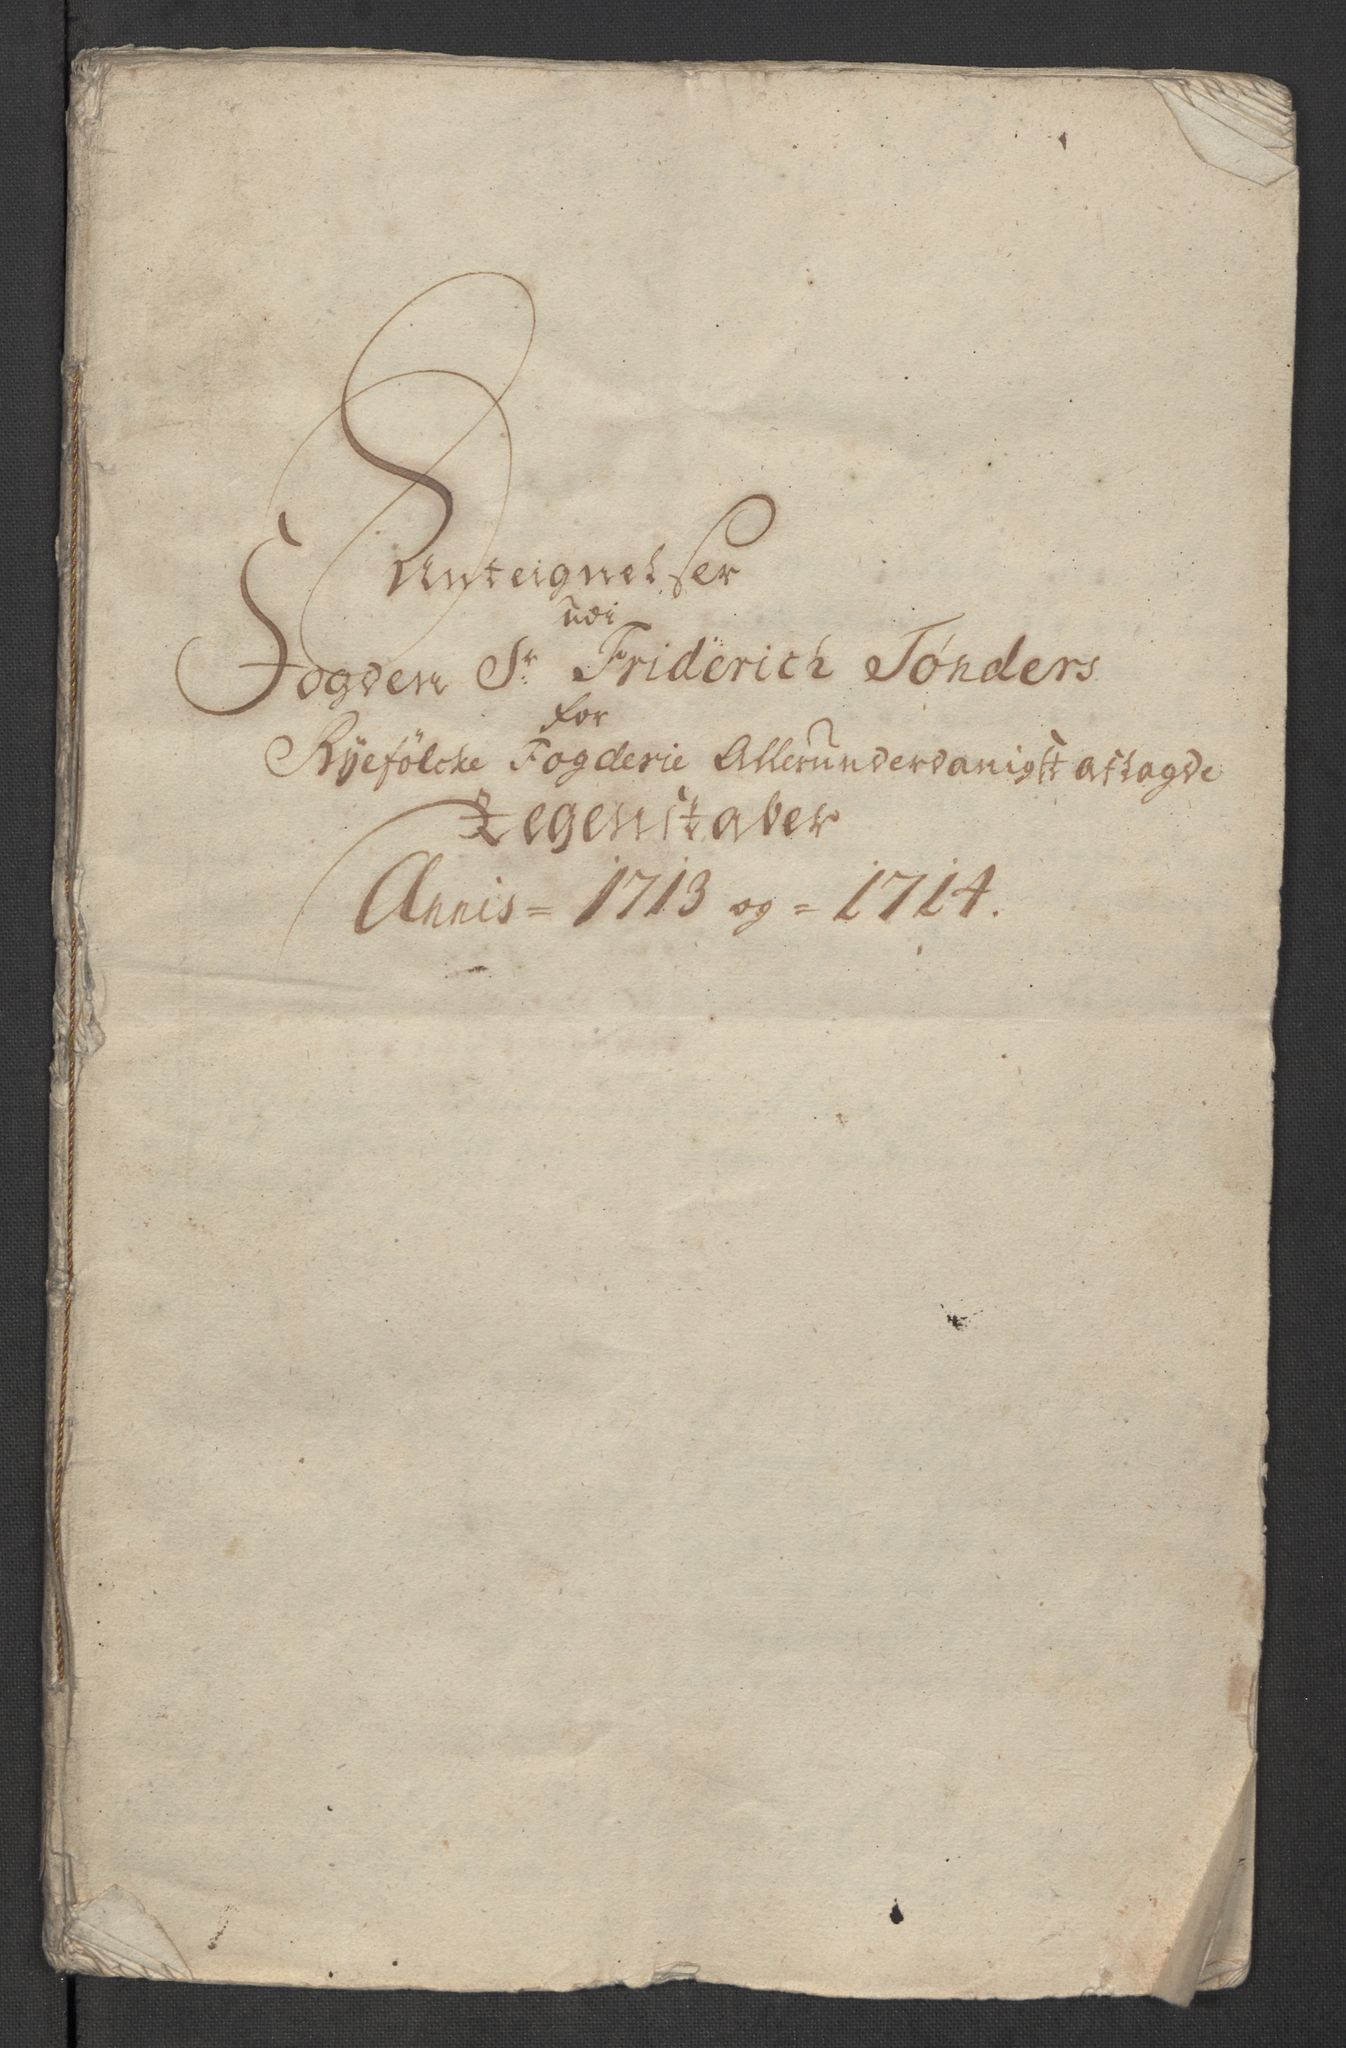 Anteignelser
udi
Fogden Sr Friderich Tønders
for
Ryefölcke Fogderie Allerunderdanigst aflagde
Regenskaber
Annis = 1713 og = 1714.